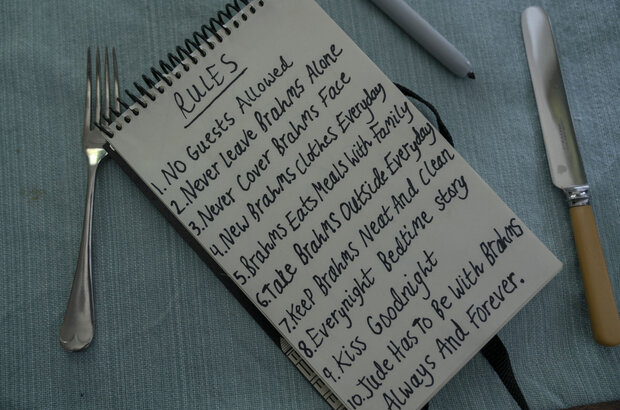 RULES
1. No Guests Allowed
2. Never Leave Brahms Alone
3. Never Cover Brahms Face
4. New Brahms Clothes Everyday
5. Brahms Eats Meals With Family
6. Take Brahms Outside Everyday
7. Keep Brahms Neat And Clean
8. Everynight Bedtime Story
9. Kiss Goodnight
10. Jude Has To Be With Brahms
Always And Forever.